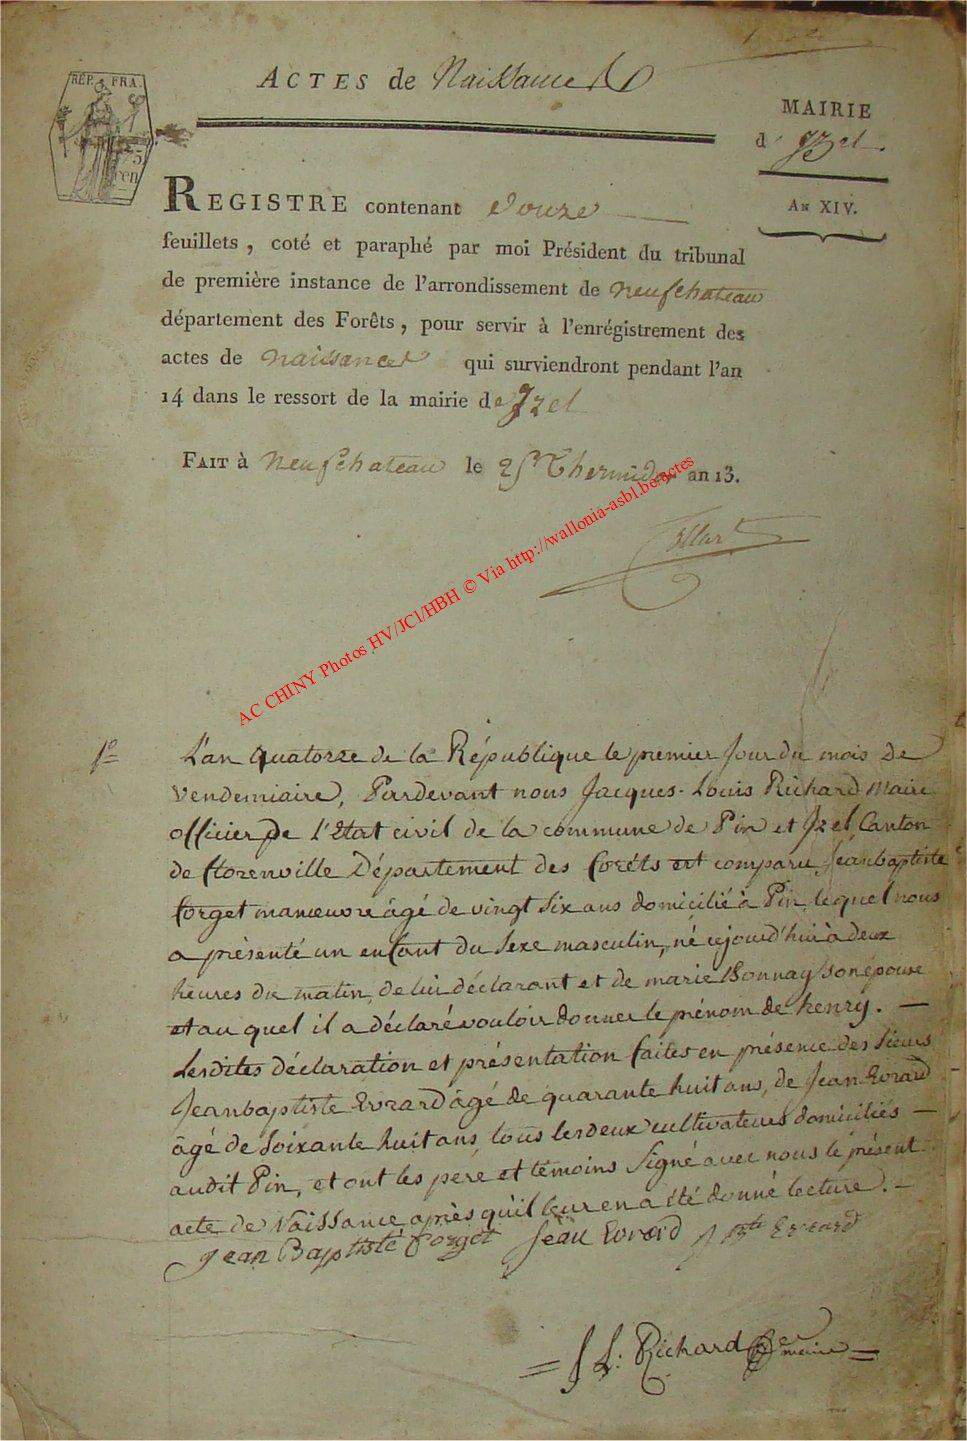 ACTES de Naissances
RÉP. FRA.
MAIRIE
d'Izel.
AN XIV.
REGISTRE contenant douze
feuillets, coté et paraphé par moi Président du tribunal
de première instance de l'arrondissement de neufchateau
département des Forêts, pour servir à l'enrégistrement des
actes de naissances qui surviendront pendant l'an
14 dans le ressort de la mairie de Izel
FAIT à neufchateau le 25 Thermidor an 13.
Collard
AC CHINY Photos HV/JCl/HBH © Via http://wallonia-asbl.be/actes
1º
L'an quatorze de la République le premier jour du mois de
Vendemiaire, Pardevant nous Jacques-Louis Richard Maire
officier de l'Etat civil de la commune de Pin et Izel, Canton
de florenville Département des forêts est comparu Jeanbaptiste
forget manœuvre âgé de vingt six ans domicilié à Pin, lequel nous
a présenté un enfant du sexe masculin, né cejourd'hui à deux
heures du matin, de lui déclarant et de marie Bonnay son épouse
et au quel il a déclaré vouloir donner le prénom de henry. —
Lesdites déclaration et présentation faites en présence des sieurs
Jeanbaptiste Evrard âgé de quarante huit ans, de Jean Evrard
âgé de soixante huit ans, tous les deux cultivateurs domiciliés —
audit Pin, et ont les peré et témoins signé avec nous le présent
acte de Naissance après qu'il leur en a été donné lecture. —
jean Baptiste forget Jean Evrard J Bte Evrard
= J L: Richard maire =